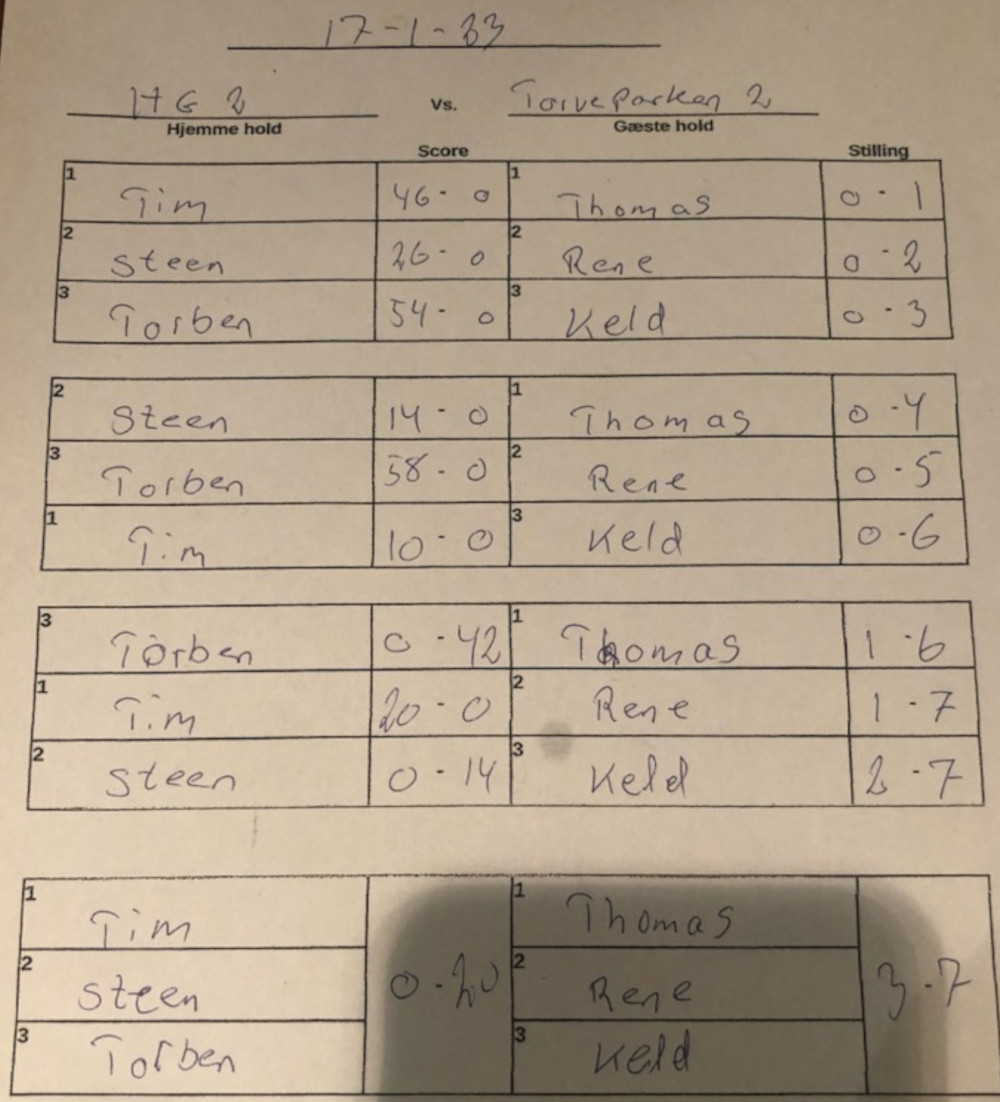 17-1-23
HG 2 Vs. Torveparken 2
Hjemme hold Gæste hold
Score Stilling
1 Tim 46-0 1 Thomas 0-1
2 Steen 26-0 2 Rene 0-2
3 Torben 54-0 3 Keld 0-3
2 Steen 14-0 1 Thomas 0-4
3 Torben 58-0 2 Rene 0-5
1 Tim 10-0 3 Keld 0-6
3 Torben 0-42 1 Thomas 1-6
1 Tim 20-0 2 Rene 1-7
2 Steen 0-14 3 Keld 2-7
1 Tim 1 Thomas
2 Steen 0-20 2 Rene 3-7
3 Torben 3 Keld